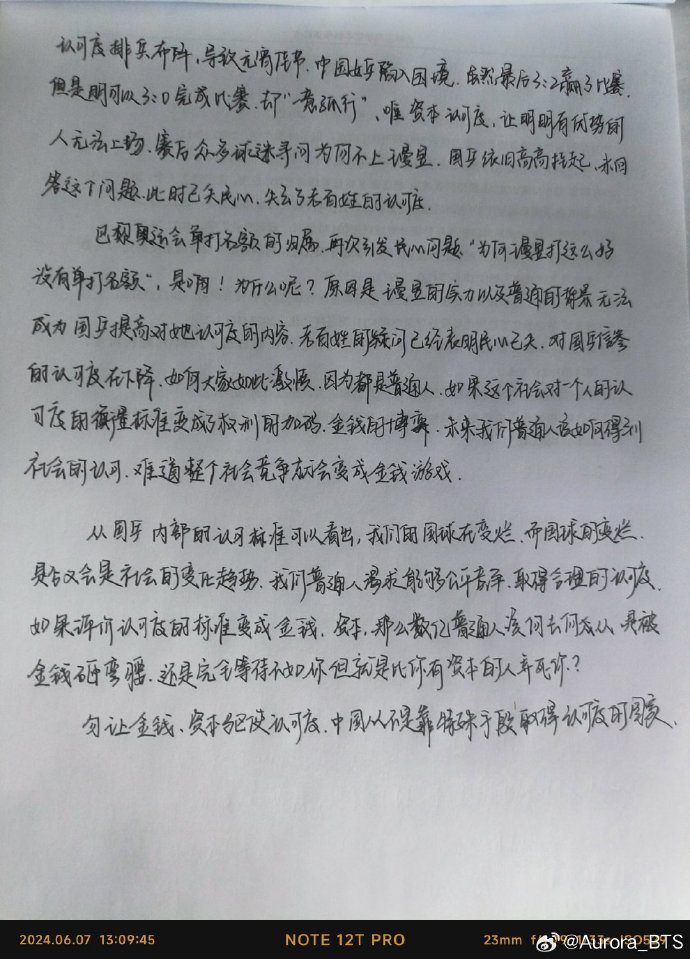 认可度排兵布阵，导致元宵佳节，中国女乒陷入困境，虽然最后3:2赢了比赛，
但是明可以3:0完成比赛，却“一意孤行”，唯资本认可度，让明明有优势的
人无法上场，赛后众多球迷寻问为何不上曼昱，国乒依旧高高挂起，未回
答这个问题，此时已失民心，失去了老百姓的认可度。
巴黎奥运会单打名额的归属，再次引发民心问题“为何曼昱打这么好
没有单打名额”，是啊！为什么呢？原因是曼昱的实力以及普通的背景无法
成为国乒提高对她认可度的内容，老百姓的疑问已经表明民心已失，对国乒
的认可度在下降，如何大家如此激愤，因为都是普通人，如果这个社会对一个人的认
可度的衡量标准变成了权利的加码，金钱的博弈，未来我们普通人该如何得到
社会的认可，难道整个社会竞争都会变成金钱游戏。
从国乒内部的认可标准可以看出，我们的国球在变烂，而国球的变烂，
是否又会是社会的变化趋势，我们普通人渴求能够公平竞争，取得合理的认可度，
如果评价认可度的标准变成金钱、资本，那么数亿普通人该何去何从，是被
金钱砸弯腰，还是完全等待不如你但就是比你有资本的人弄死你？
勿让金钱、资本驱使认可度，中国从不是靠特殊手段取得认可度的国家。
2024.06.07 13:09:45
NOTE 12T PRO
23mm
@Aurora_BTS